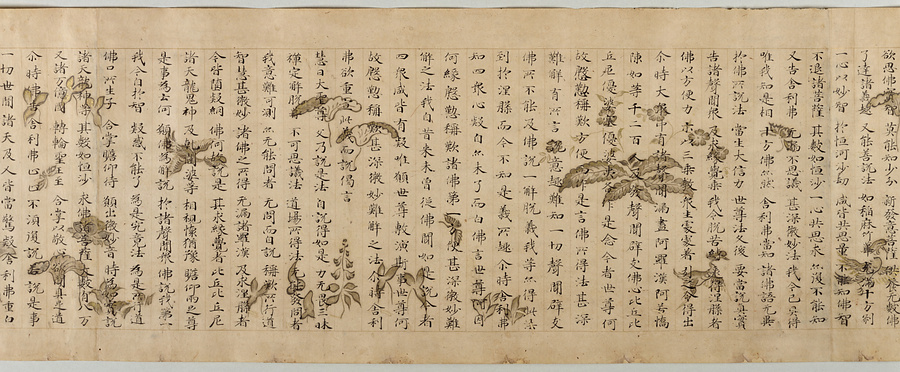 欲思佛實智 莫能知少分 新發意菩薩 供養无數佛
了達諸義趣 又能善說法 如稻麻竹葦 充滿十方剎
一心以妙智 於恒河沙劫 咸皆共思量 不能知佛智
不退諸菩薩 其數如恒沙 一心共思求 亦復不能知
又告舍利弗 无漏不思議 甚深微妙法 我今已具得
唯我知是相 十方佛亦然 舍利弗當知 諸佛語无異
於佛所說法 當生大信力 世尊法久後 要當說真實
告諸聲聞眾 及求緣覺乘 我令脫苦縛 逮得涅槃者
佛以方便力 示以三乘教 眾生處處著 引之令得出
尒時大眾中有諸聲聞漏盡阿羅漢阿若憍
陳如等千二百人及發聲聞辟支佛心比丘比
丘尼優婆塞優婆夷各作是念今者世尊何
故慇懃稱歎方便而作是言佛所得法甚深
難解有所言說意趣難知一切聲聞辟支
佛所不能及佛說一解脫義我等亦得此法
到於涅槃而今不知是義所趣尒時舍利弗
知四眾心疑自亦未了而白佛言世尊何因
何緣慇懃稱歎諸佛第一方便甚深微妙難
解之法我自昔來未曾從佛聞如是說今者
四眾咸皆有疑唯願世尊敷演斯事世尊何
故慇懃稱歎甚深微妙難解之法尒時舍利
弗欲重宣此義而說偈言
慧日大聖尊 久乃說是法 自說得如是 力无畏三昧
禪定解脫等 不可思議法 道場所得法 无能發問者
我意難可測 亦无能問者 无問而自說 稱歎所行道
智慧甚微妙 諸佛之所得 无漏諸羅漢 及求涅槃者
今皆墮疑網 佛何故說是 其求緣覺者 比丘比丘尼
諸天龍鬼神 及乾闥婆等 相視懷猶豫 瞻仰兩足尊
是事為云何 願佛為解說 於諸聲聞眾 佛說我第一
我今自於智 疑惑不能了 為是究竟法 為是所行道
佛口所生子 合掌瞻仰待 願出微妙音 時為如實說
諸天龍神等 其數如恒沙 求佛諸菩薩 大數有八万
又諸万億國 轉輪聖王至 合掌以敬心 欲聞具足道
尒時佛告舍利弗止止不須復說若說是事
一切世間諸天及人皆當驚疑舍利弗重白